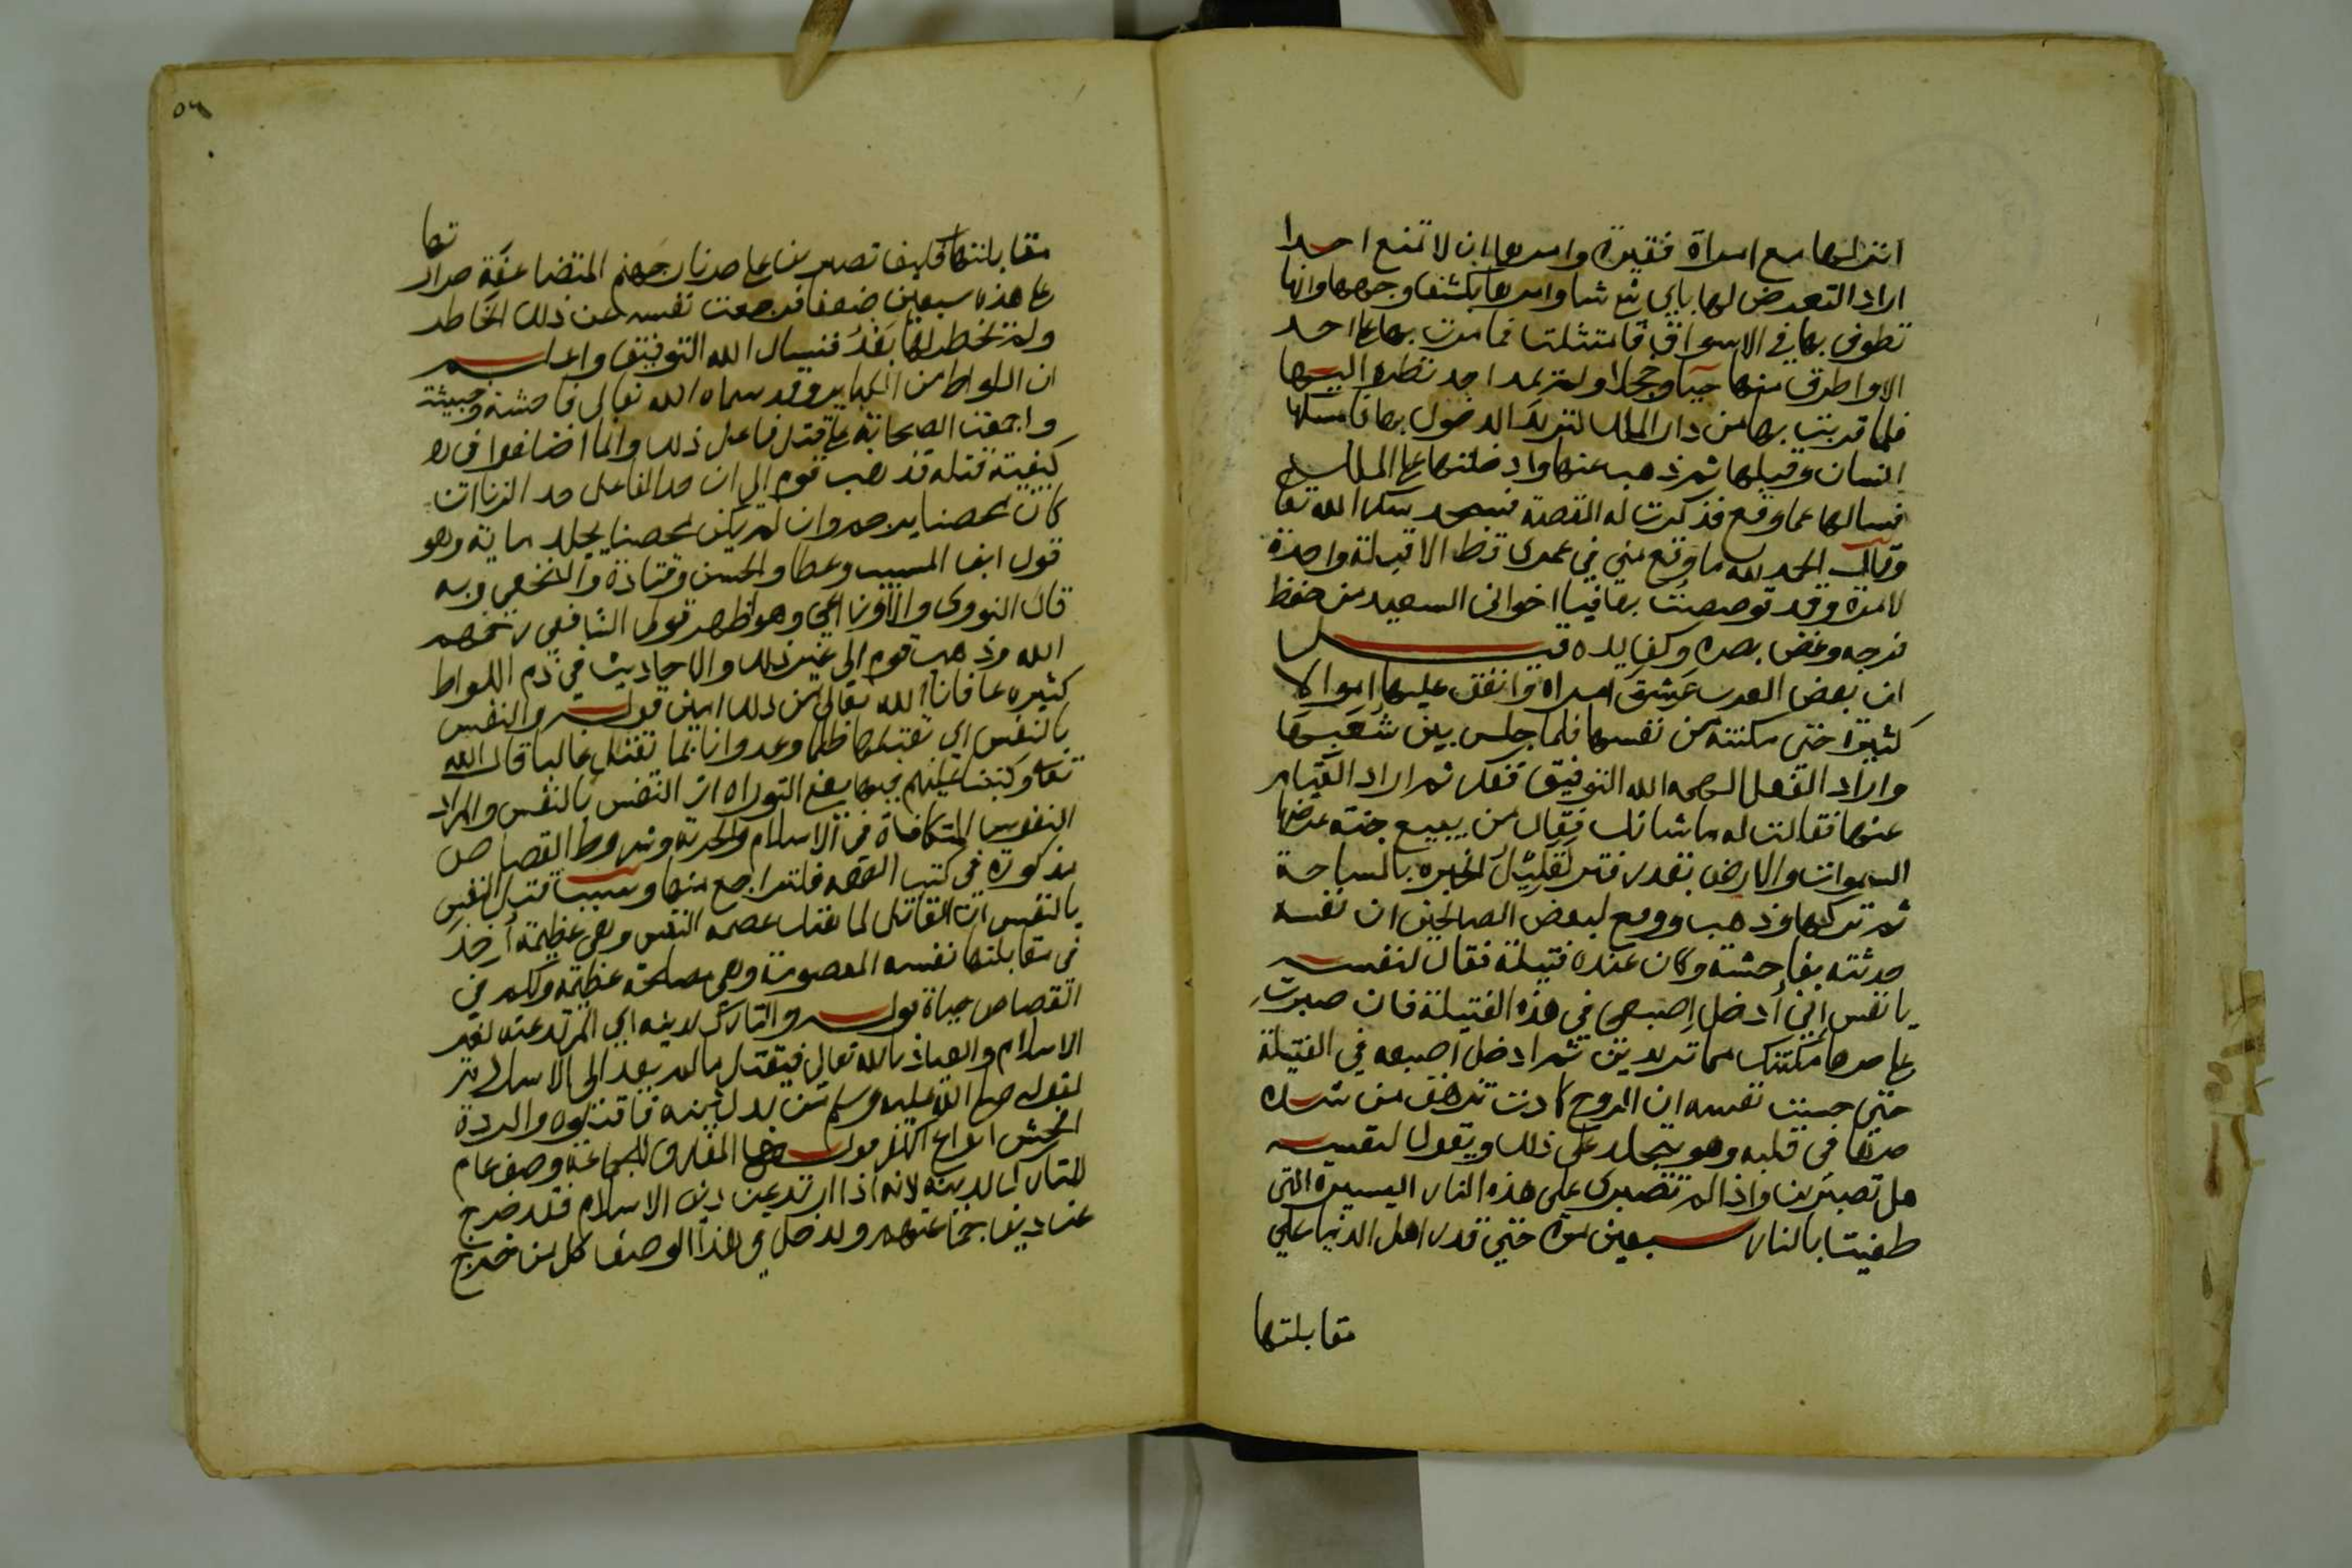 انزلها مع امراة فقيرة وامرها ان لا تمنع احدا
اراد التعرض لها باي شئ شا وامرها بكشف وجهها وانها
تطوف بها في الاسواق فامتثلت فما مرت بها على احد
الا واطرق منها حيا وخجلا ولم يمد احد نظره اليها
فلما قربت بها من دار الملك لتريد الدخول بها فامسكها
انسان وقبلها ثم ذهب عنها وادخلتها على الملك
فسالها عما وقع فذكرت له القصة فسجد شكرا لله تعا
وقال الحمد لله ما وقع مني في عمري قط الا قبلة واحدة
لامرة وقد قوصصت بها فيا اخواني السعيد من حفظ
فرجه وغض بصره وكف يده قيل
ان بعض العرب عشق امراة وانفق عليها اموالا
كثيرة حتى مكنته من نفسها فلما جلس بين شعبها
واراد الفعل الهمه الله التوفيق ففكر ثم اراد القيام
عنها فقالت له ما شانك فقال من يبيع جنة عرضها
السموات والارض بقدر فتر لقليل الخبره بالمساحة
ثم تركها وذهب ووقع لبعض الصالحين ان نفسه
حدثته بفاحشة وكان عنده فتيلة فقال لنفسه
يا نفس اني ادخل اصبعي في هذه الفتيلة فان صبرت
على حرها مكنتك مما تريدين ثم ادخل اصبعه في الفتيلة
حتى حست نفسه ان الروح كادت تزهق من شدة
حرها في قلبه وهو يتجلد على ذلك ويقول لنفسه
هل تصبرين واذا لم تصبري على هذه النار اليسيرة التي
طفيت بالنار سبعين مرة حتى قدر اهل الدنيا على
مقابلتها
تعا
مقابلتها فكيف تصبرين على حر نار جهنم المتضاعفة حرارتها
على هذه سبعين ضعفا فرجعت نفسه عن ذلك الخاطر
ولم يخطر لها بعد فنسال الله التوفيق واعلم
ان اللواط من الكباير وقد سماه الله تعالى فاحشة وخبيثة
واجمعت الصحابة على قتل فاعل ذلك وانما اختلفوا في
كيفية قتله فذهب قوم الى ان حد الفاعل حد الزنا ان
كان محصنا يرجم وان لم يكن محصنا يجلد ماية وهو
قول ابن المسيب وعطا والحسن وقتادة والنخعي وبه
قال النووي والاوزاعي وهو اظهر قولي الشافعي رحمهم
الله وذهب قوم الى غير ذلك والاحاديث في ذم اللواط
كثيره عافانا الله تعالى من ذلك امين قوله والنفس
بالنفس اي تقتلها ظلما وعدوانا بما تقتل غالبا قال الله
تعا وكتبنا عليهم فيها يعني التوراه ان النفس بالنفس والمراد
النفوس المتكافاة في الاسلام والحرية وشروط القصاص
مذكورة في كتب الفقه فلتراجع منها وسبب قتل النفس
بالنفس ان القاتل لما هتك عصمة النفس وهي عظيمة اخذ
في مقابلتها نفسه المعصومة وهي مصلحة عظيمة ولكم في
القصاص حياة قوله والتارك لدينه اي المرتد عنه لغير
الاسلام والعياذ بالله تعالى فيقتل ما لم يعد الى الاسلام
لقوله صلى الله عليه وسلم من بدل دينه فاقتلوه والردة
افحش انواع الكفر قوله المفارق للجماعة وصف عام
للتارك لدينه لانه اذا ارتد عن دين الاسلام فقد خرج
عن دين جماعتهم ويدخل في هذا الوصف كل من خرج